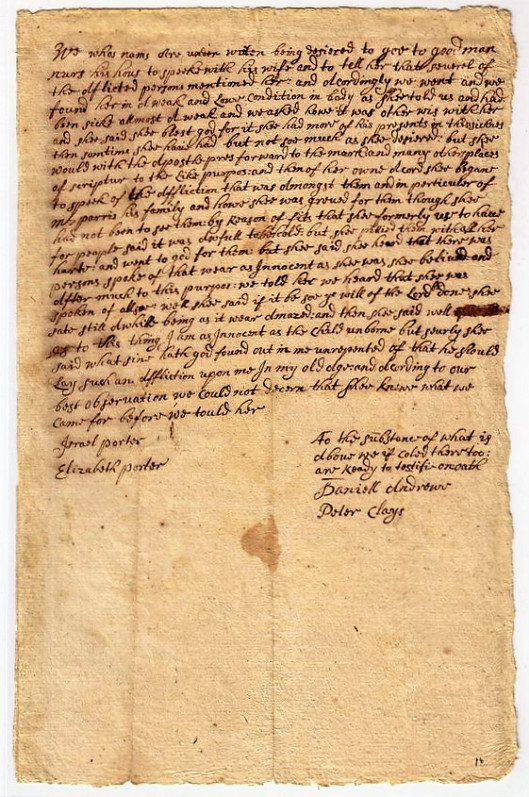 We whos nams Are under writen being desiered to goe to goodman
nurs his hous to speeke with his wife and to tell her that severel of
the Aflicted persons mentioned her: and Acordingly we went and we
found her in A weak and Lowe condition in body as shee told us and had
been sicke allmost A weak and we asked howe it was other wis with her
and shee said shee blest god for it shee had more of his presents in this sicknes
then somtime shee have had but not soe much as shee desiered: but shee
would with the Apostle pres forward to the mark: and many other places
of scriptur to the Like purpos: and then of her owne Acord shee begane
to speek of the Affliction that was Amongst them and in perticuler of
mr parris his family and howe shee was greved for them though shee
had not been to see them: by Reason of fits that shee formerly use to have
for people said it was Awfull to behold: but shee pittied them with all her
harte: and went to god for them: but shee said shee heard that there was
persons spoke of that wear as Innocent as shee was shee belived and
After much to this purpos: we told her we heard that shee was
spoken of allsoe: well she said if it be soe ye will of the Lord be done: shee
sate still Awhille being as it wear Amazed: and then shee said well
as to this thing I am as Innocent as the child unborne but seurly shee
said what sine hath god found out in me unrepented of that he should
Lay such an Affliction upon me In my old Age: and Acording to our
best observation we could not decern that shee knewe what we
came for before we tould her
Israel porter
Elizabeth porter
To the substance of what is
Above we if caled there too:
are Ready to testifie on oath
Daniell Andrewe
Peter Clays
18